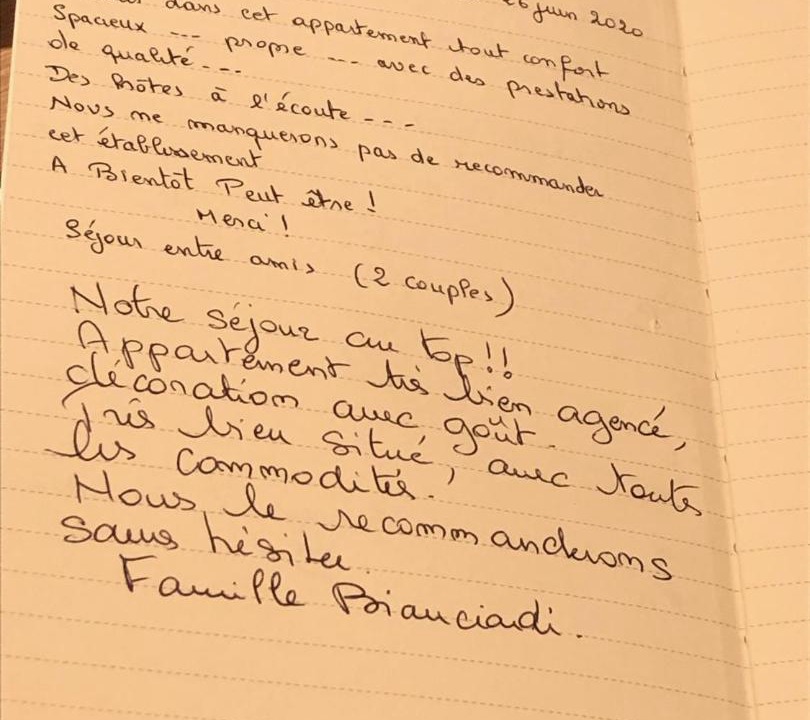 6 juin 2020
dans cet appartement tout confort
Spacieux --- propre --- avec des prestations
de qualité ---
Des hôtes à l'écoute ---
Nous ne manquerons pas de recommander
cet établissement
A Bientôt Peut être !
Merci !
Séjour entre amis (2 couples)
Notre séjour au top !!
Appartement très bien agencé,
décoration avec goût.
Très bien situé, avec toutes
les commodités.
Nous le recommanderons
sans hésiter.
Famille Bianciardi.